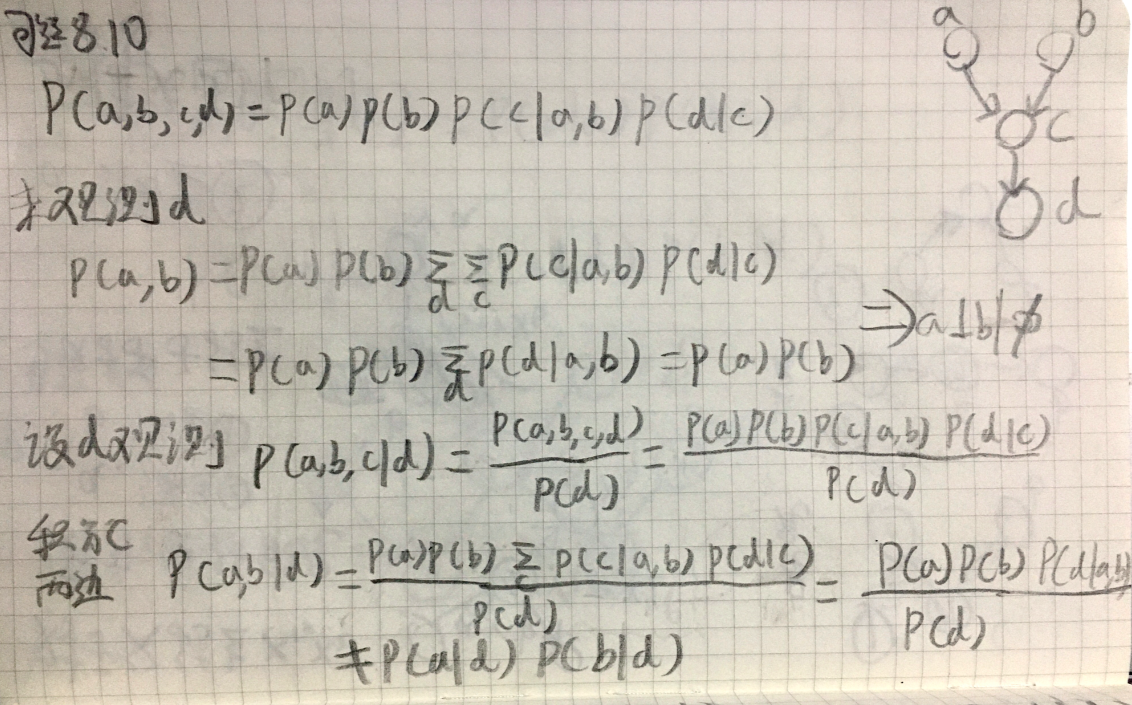 a b
8.10
P(a,b,c,d)=P(a)P(b)P(c|a,b)P(d|c)
c
未观测d
d
P(a,b)=P(a)P(b)∑_d∑_c P(c|a,b)P(d|c)
⇒a⊥b|∅
=P(a)P(b)∑_d P(d|a,b)=P(a)P(b)
设d观测 P(a,b,c|d)=P(a,b,c,d)/P(d)=P(a)P(b)P(c|a,b)P(d|c)/P(d)
积分C
两边 P(a,b|d)=P(a)P(b)∑_c P(c|a,b)P(d|c)/P(d)=P(a)P(b)P(d|a,b)/P(d)
≠P(a|d)P(b|d)